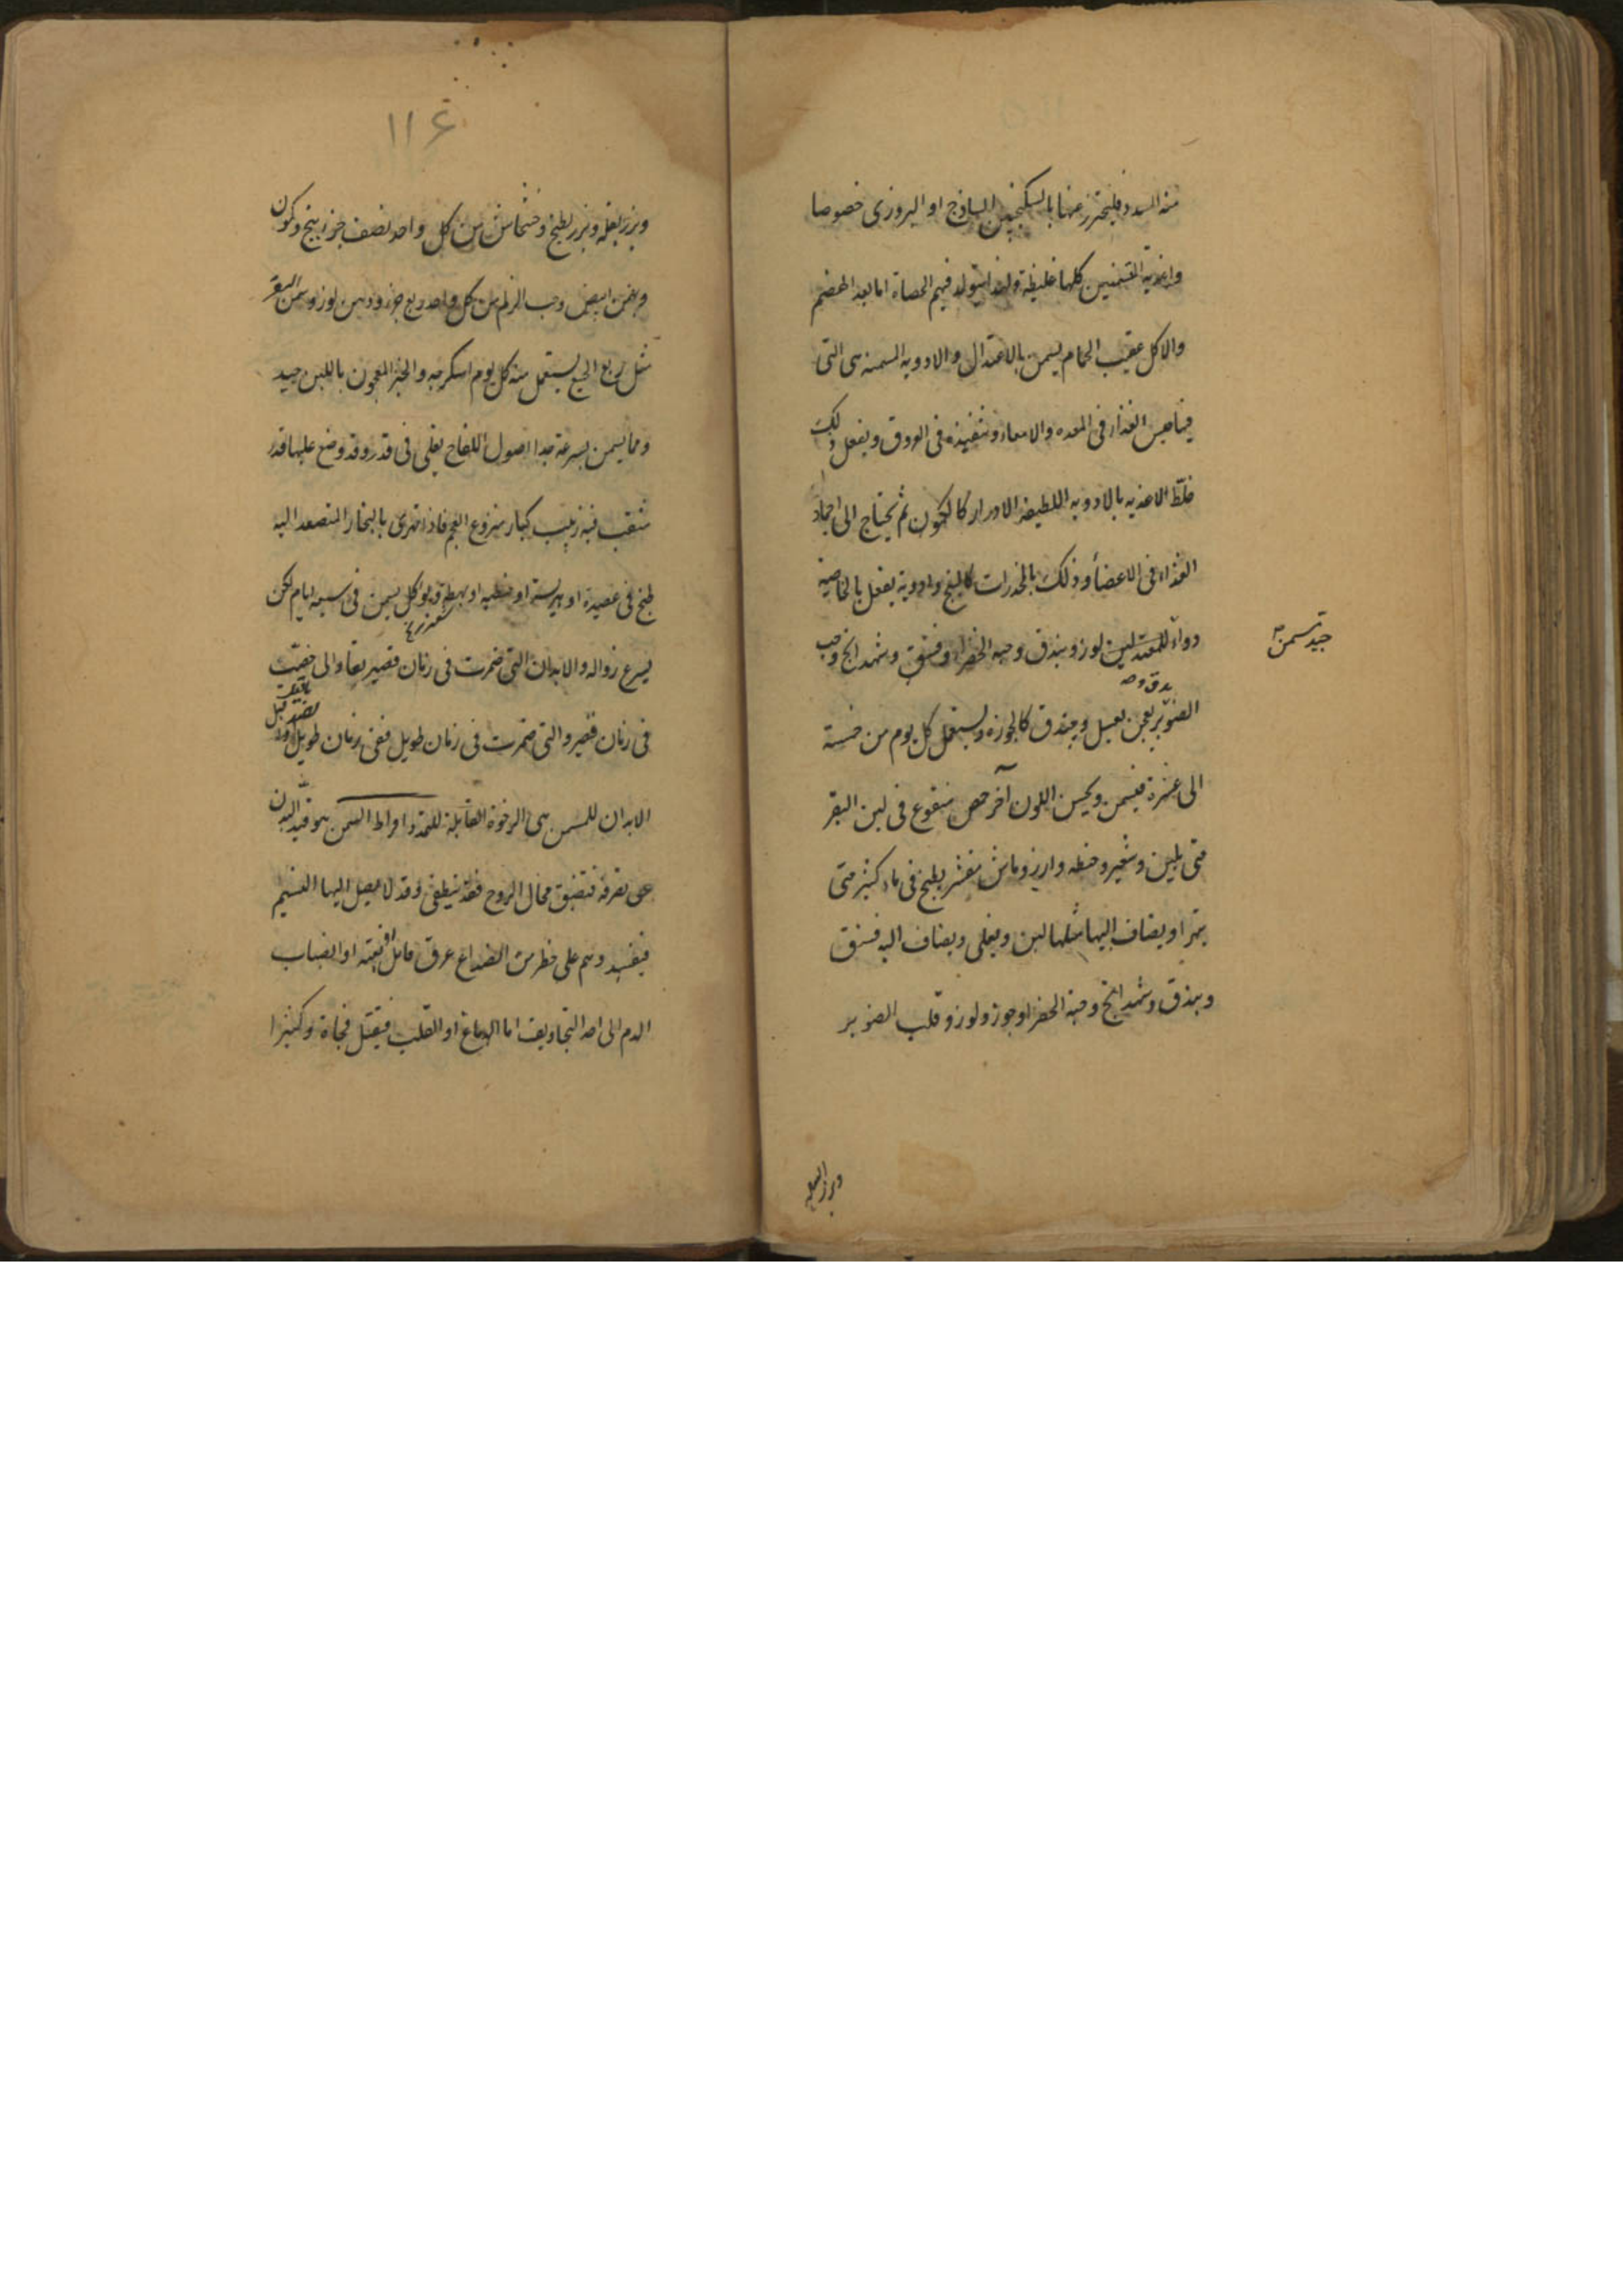 منه السدد فليحترز عنها بالسكنجبين الساذج او البزوري خصوصا
واغذية المتسمنين كلها غليظة ولهذا يتولد فيهم الحصاة اما بعد الهضم
والاكل عقيب الحمام يسمن بالاعتدال والادوية المسمنه هي التى
فيها حبس الغذاء فى المعده والامعاء وتنفيذه فى العروق ويفعل ذلك
خلط الاغذيه بالادويه اللطيفة الادرار كالكمون ثم يحتاج الى اجماد
الغذاء فى الاعضاء وذلك بالمخدرات كالبنج وادوية يفعل بالخاصية
دواء للمعتدلين لوز وبندق وحبه الخضراء وفستق وشهدانج وحب
جيد تسمن
يدق وصـ
الصنوبر يعجن بعسل ويبندق كالجوزه ويستعمل كل يوم من خمسة
الى عشرة فيسمن ويحسن اللون آخر حمص منقوع فى لبن البقر
حتى يلين وشعير وحنطه وارز وماش مقشر يطبخ فى ماء كثير حتى
يتهرا ويضاف اليها مثلها لبن ويغلى ويضاف اليه فستق
وبندق وشهدانج وحبة الخضرا وجوز ولوز وقلب الصنوبر
وبزر البقله
١١٤
وبزر بقله وبزر بطيخ وخشخاش من كل واحد نصف جزء بنج وكمون
وبهمن ابيض وحب الزلم من كل واحد ربع جزء ودهن لوز وسمن البقر
مثل ربع الجميع يستعمل منه كل يوم اسكرجه والخبز المعجون باللبن جيد
ومما يسمن بسرعة جدا اصول اللفاح يغلى فى قدر وقد وضع عليها قدر
مثقب فيه زبيب كبار منزوع العجم فاذا تهرى بالبخار المتصعد اليه
طبخ فى عصيدة او هريسة او حنطيه او بهطة ويوكل يسمن فى سبعه ايام لكن
يسرع زواله والابدان التى ضمرت فى زمان قصير يعاد الى خصبت
فى زمان قصير والتى ضمرت فى زمان طويل ففى زمان طويل
الابدان للسمن هى الرخوة القابلة للتمدد وافراط السمن هو قيد البدن
عن تصرفه فتضيق مجال الروح فقد ينطفى وقد لا يصل اليها النسيم
فيفسد وهم على خطر من انصداع عرق قاتل بغته او انصباب
الدم الى احد التجاويف اما الدماغ او القلب فيقتل فجاة وكثيرا